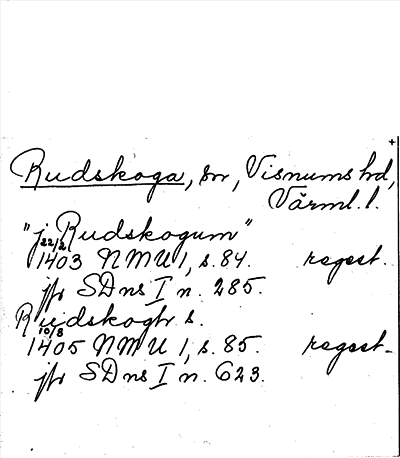 Rudskoga, sn, Visnums hd,
Värml. l.
"j Rudskogum"
22/2 1403 NMU 1, s. 84. regest.
jfr SDns I n. 285.
Rudskoghr s.
10/8 1405 NMU 1, s. 85. regest.
jfr SDns I n. 623.